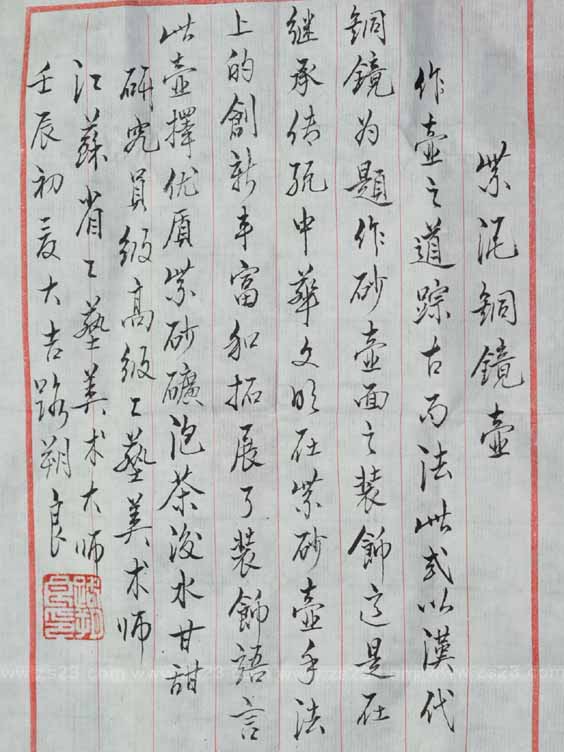 紫泥銅鏡壺
作壺之道踪古而法此式以漢代
銅鏡为題作砂壺面之装飾这是在
继承传统中華文明在紫砂壺手法
上的創新丰富和拓展了装飾語言
此壺擇优质紫砂礦泡茶后水甘甜
研究員级高级工藝美术师
江蘇省工藝美术大师
壬辰初夏大吉路朔良
www.zs23.com